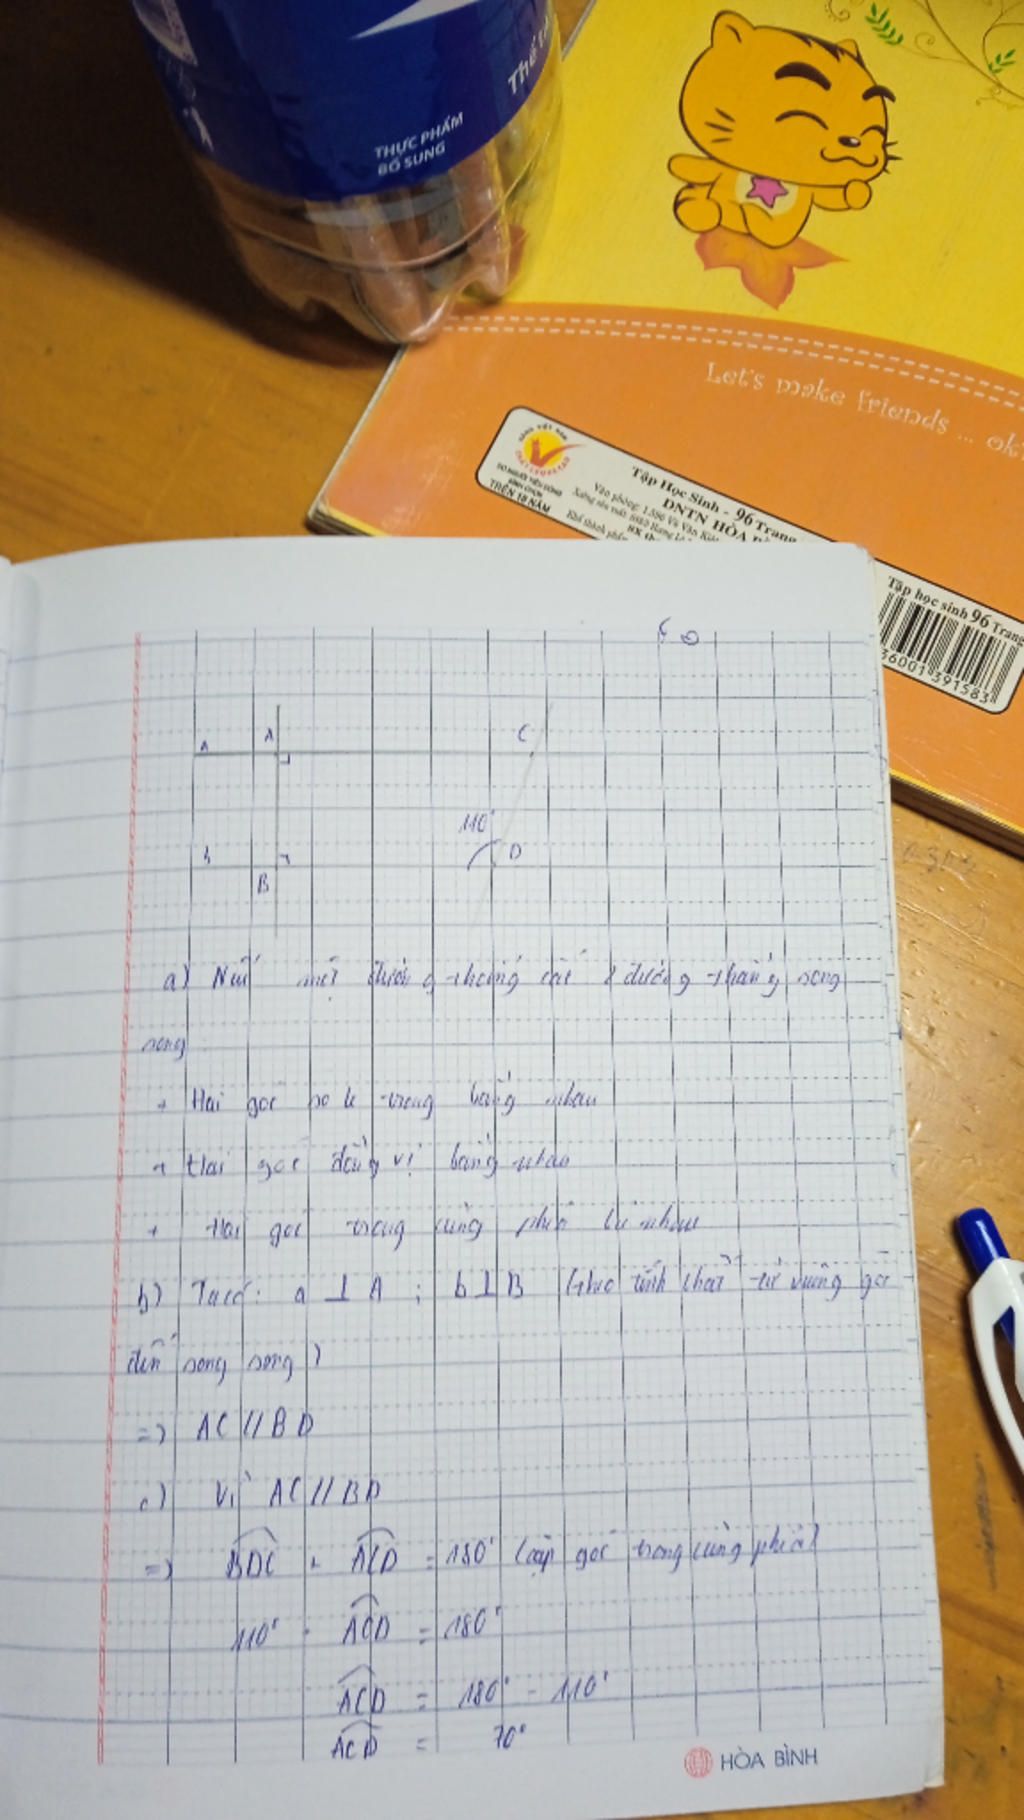 Thể t
THỰC PHẨM
BỔ SUNG
Let's make friends ... ok
HÀNG VIỆT NAM
CHẤT LƯỢNG CAO
DO NGƯỜI TIÊU DÙNG
BÌNH CHỌN
TRÊN 18 NĂM
Tập Học Sinh - 96 Trang
Văn phòng: 1.586 Võ Văn Kiệt
DNTN HÒA B
Tập học sinh 96 Trang
36001 391583
A A C
110° D
b
B
a) Nếu một đường thẳng cắt 2 đường thẳng song
song
+ Hai góc so le trong bằng nhau
+ Hai góc đồng vị bằng nhau
+ Hai góc trong cùng phía bù nhau
b) Ta có: a ⊥ A ; b ⊥ B (theo tính chất từ vuông góc
đến song song)
=> AC // BD
c) Vì AC // BD
=> BDC + ACD = 180° (cặp góc trong cùng phía)
110° + ACD = 180°
ACD = 180° - 110°
ACD = 70°
HÒA BÌNH